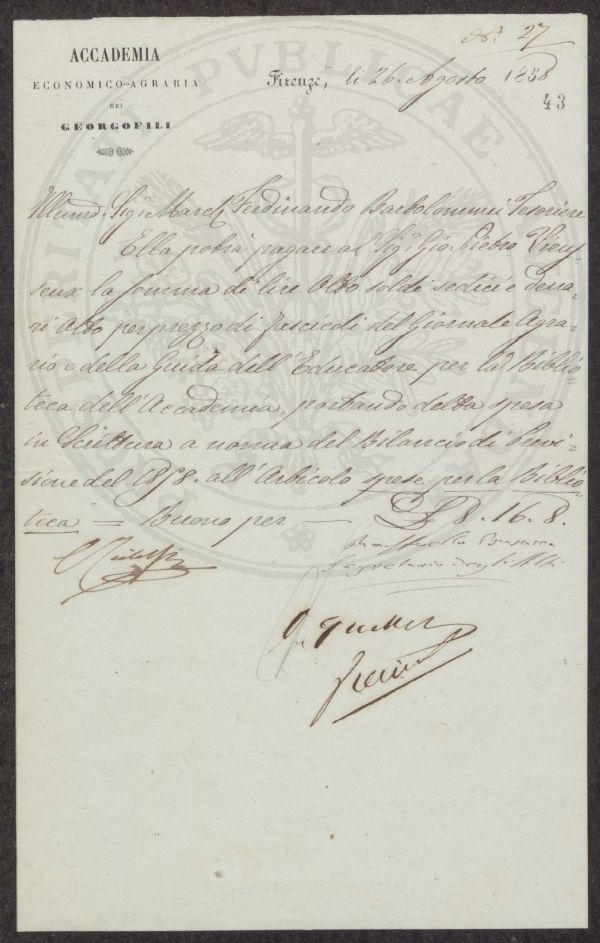 N.° 27
ACCADEMIA
ECONOMICO-AGRARIA
DEI
GEORGOFILI
Firenze, li 26. Agosto 1858
43
PUBLICAE
Illmo. Sig: March. Ferdinando Bartolommei Tesoriere
Ella potrà pagare al Sig: Gio. Pietro Vieus=
seux la somma di lire Otto soldi sedici e dena=
ri Otto per prezzo di fascicoli del Giornale Agra=
rio e della Guida dell'Educatore per la Biblio=
teca dell'Accademia, portando detta spesa
in Scrittura a norma del Bilancio di Previ=
sione del 1858. all'Articolo spese per la Biblio=
teca = Buono per — £ 8. 16. 8.
Segretario degli Atti